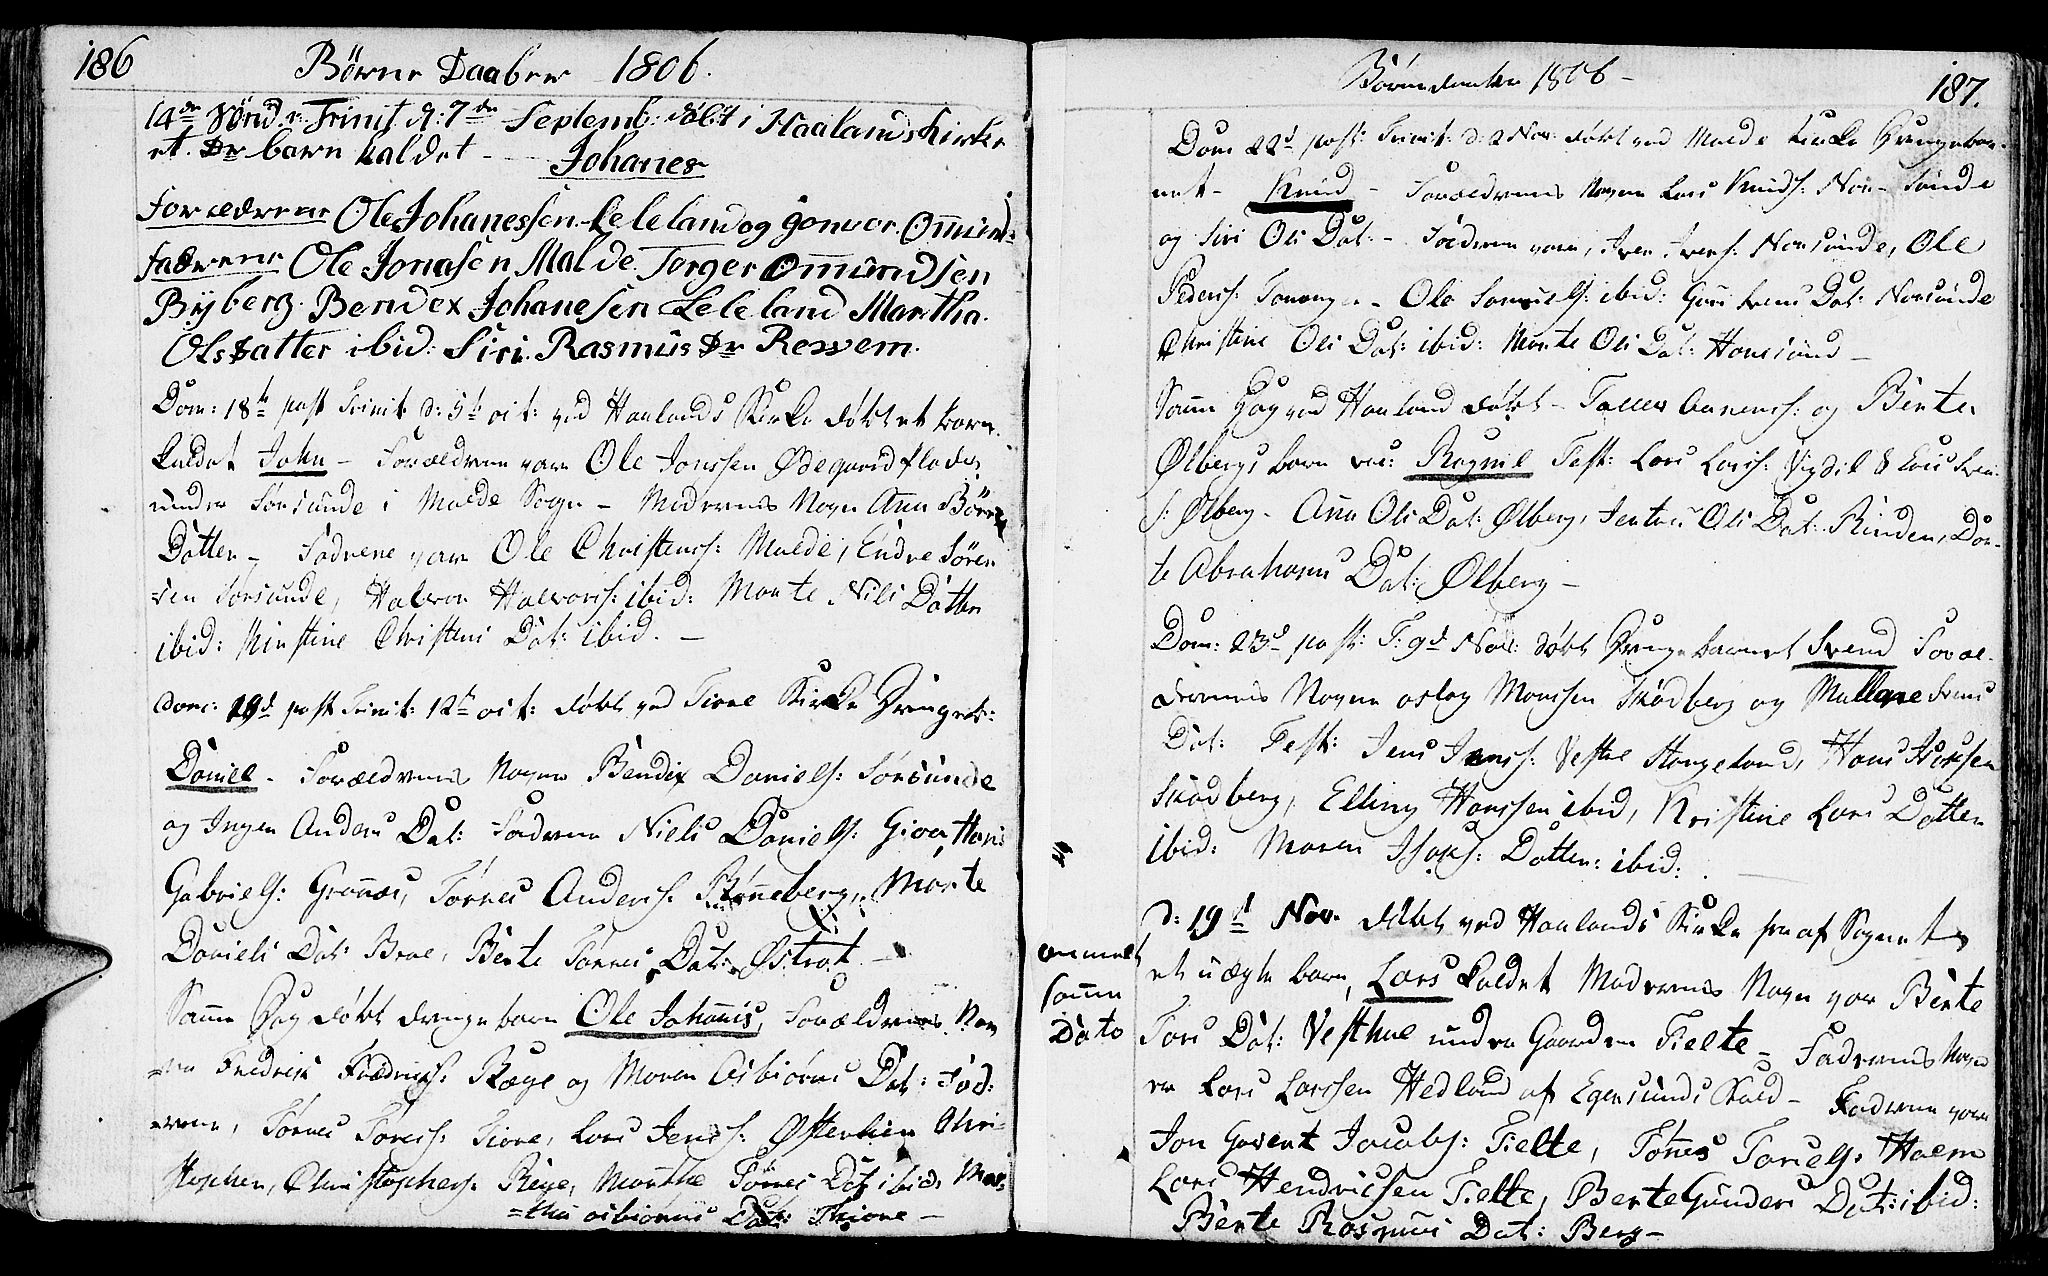 186
Børne Daaber 1806.
14de Sönd. p. Trinit. d: 7de Septemb: døbt i Haalands kirke
et barn kaldet - Johanes
Forældrene Ole Johanessen Leleland og Gonvor Omund:
fadrene Ole Jonasen Malde Torger Omundsen
Byberg. Bendex Johanesen Leleland Martha
Olsdatter ibid: Siri Rasmus Dr Revem.
Dom: 18de post Trinit: d: 5t oct: ved Haalands Kirke døbt et barn
kaldet John - Forældrene vare Ole Jonssen Ødegaard
under Sørsunde i Malde Sogn - Moderens Navn Ann
Datter - Fadrene vare Ole Christens: Malde, Endre Sören
sen Sørsunde, Halvor Halvors: ibid: Marte Nils Datter
ibid: Kirstine Christens Dat: ibid. -
Dom: 19d post Trinit: 12te oct: døbt ved Tiore Kirke Drengeb:
Daniel - Forældrenes Navne Bendix Daniels: Sørsunde
og Inger Anders Dat: Fadrene Niels Daniels: Hans
Gabriels: Grannes, Tørres Anders: Rønneberg, Marte
Daniels Dat: Brae, Berte Tørres Dat: Østrat -
Samme Dag døbt drengebarn Ole Johannis, Forældrenes Nav
ne Fredrich Fredrichs: Ræge og Maren Asbiörns Dat: Fad:
rene, Tørres Tores: Tiore, Lars Jens:
Christophers: Ræge, Marthe Tørres Dat ibid: Mar:
=tha asbiörns Dat: Thiore -
Børnedaaben 1806 -
187.
Dom 22d post: Trinit: d: 2 Nov: døbt ved Malde Kirke Drengebar-
net - Knud - Forældrenes Navne Lars Knuds: Nor-Sunde
og Siri Ols Dat: - Fadrene vare, Iver Ivers: Norsunde, Ole
Peders: Tananger - Ole Samuels: ibid: Guri Svens Dat: Norsunde
Christine Ols Dat: ibid: Marte Ols Dat:
Samme Dag ved Haaland døbt - Aanens: og Berte
Ølbergs barn Ragnil Test: Lars Lars:
s: Ølberg - Ann Ols Dat: Ølberg, Ols Dat: Rinden, Dor-
te Abrahams Dat: Ølberg -
Dom: 23d post: T: 9d Nov: døbt Drengebarnet Svend Foræl-
drenes Navne aslag Monsen Skadberg og Mallene Svens
Dat: Test: Jens Jens: Vestre Stangeland, Hans
Skadberg, Elling Hanssen ibid, Kristine Lars Datter
ibid: Maren Isaks: Datter: ibid:
d: 19d Nov. døbt ved Haalands Kirke Sognet
et uægte barn, Lars kaldet Moderens Navn var Berte
Tors Dat: Vesthus under Gaarden Tielte - Fadrenes Navn
er Lars Larssen Hedland af Egersunds - Fadrene vare
Jon Govert Jacobs: Tielte, Tønnes Toriels: Haem
Lars Hendricsen Tielte, Berte Gunders Dat: ibid:
Berte Rasmus Dat: Berg -
samme
Dato